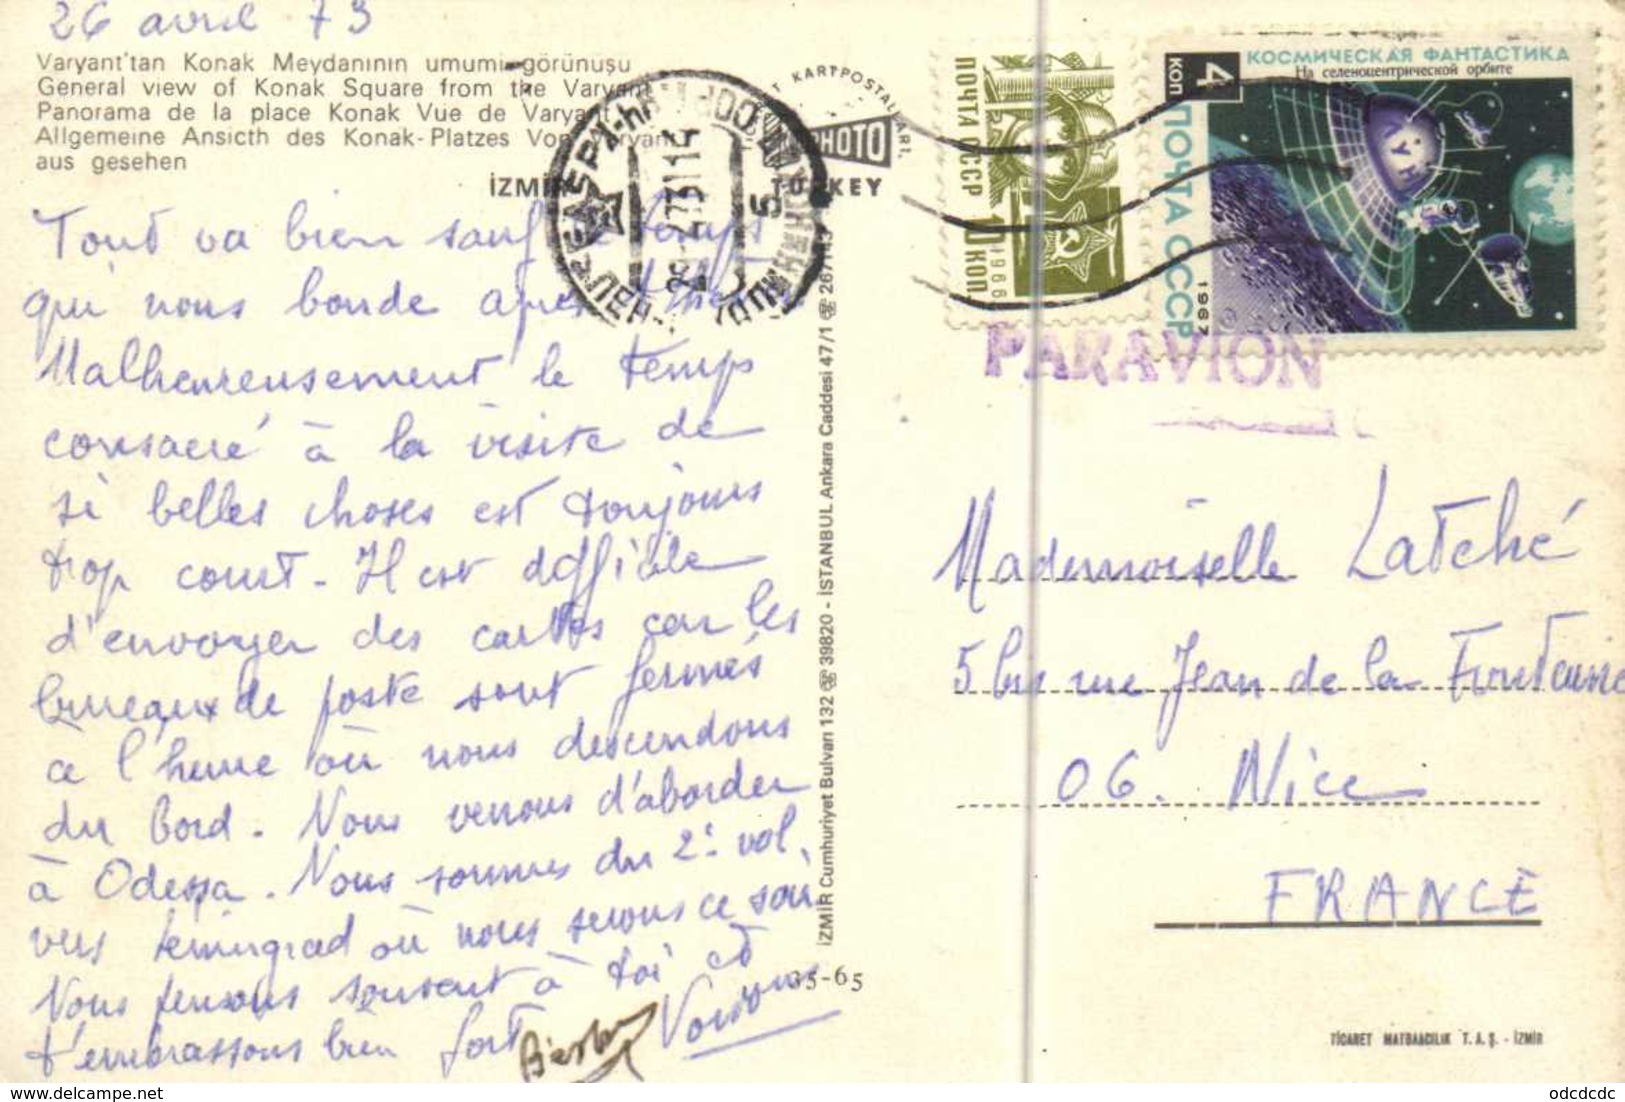 26 avril 73
Varyant'tan Konak Meydanının umumi görünuşu
General view of Konak Square from the Varyant
Panorama de la place Konak Vue de Varyant
Allgemeine Ansicth des Konak-Platzes Von Varyant
aus gesehen
İZMİR TURKEY
KARTPOSTAL
PHOTO
Tout va bien sauf le temps
qui nous boude après
Malheureusement le temps
consacré à la visite de
si belles choses est toujours
trop court - Il est difficile
d'envoyer des cartes car les
bureaux de poste sont fermés
à l'heure où nous descendons
du bord. Nous venons d'aborder
à Odessa. Nous sommes du 2e vol
vers Leningrad où nous serons ce soir
Nous pensons souvent à toi et
t'embrassons bien fort
İZMİR Cumhuriyet Bulvarı 132 ☏ 39820 - İSTANBUL Ankara Caddesi 47/1 ☏
35-65
ПОЧТА СССР
10 КОП
1966
КОСМИЧЕСКАЯ ФАНТАСТИКА
На селеноцентрической орбите
4 КОП
ПОЧТА СССР
1967
ЛУНА
PAR AVION
Mademoiselle Latché
5 bis rue Jean de la Fontaine
06. Nice
FRANCE
TİCARET MATBAACILIK T.A.Ş. - İZMİR
odcdcdc